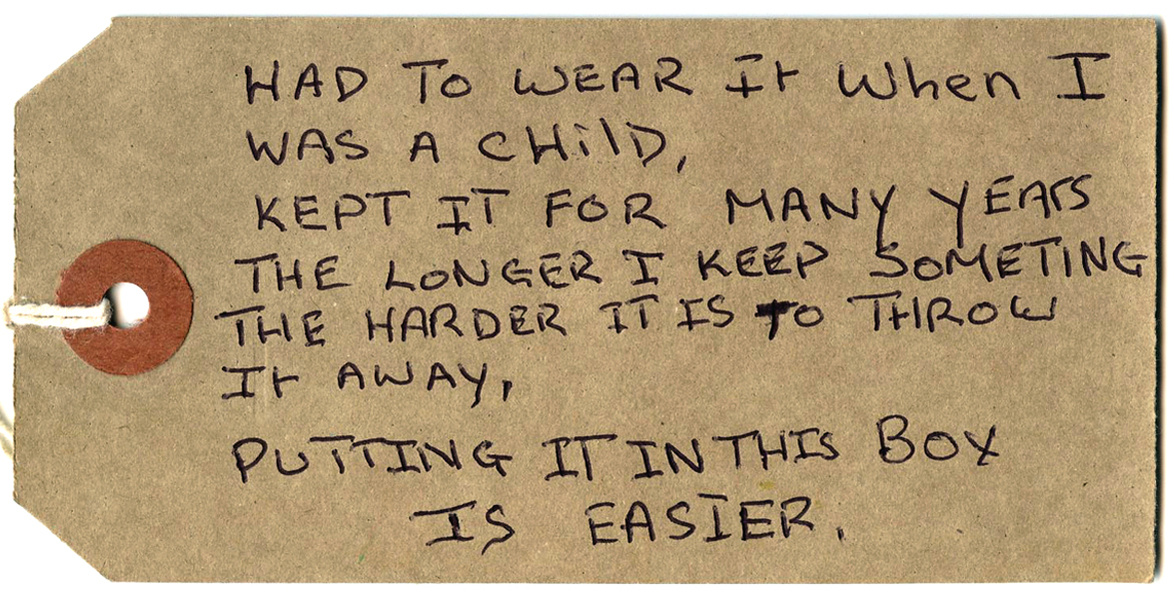 HAD TO WEAR It When I
WAS A CHilD,
KEPT IT FOR MANY YEARS
THE LONGER I KEEP SOMETING
THE HARDER IT IS TO THROW
It AWAY,
PUTTING IT IN THIS BOX
IS EASIER.